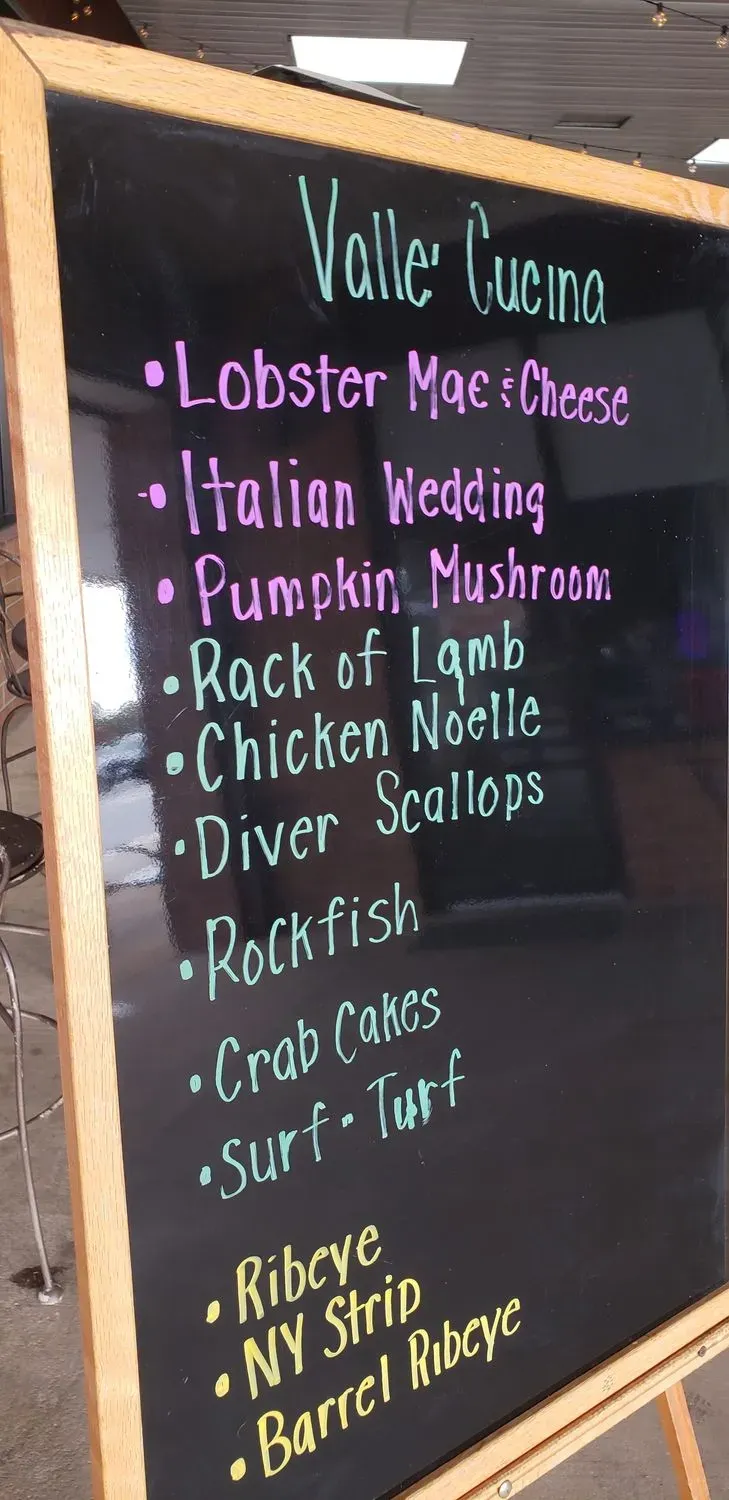 Valle' Cucina
• Lobster Mac & Cheese
• Italian Wedding
• Pumpkin Mushroom
• Rack of Lamb
• Chicken Noelle
• Diver Scallops
• Rockfish
• Crab Cakes
• Surf - Turf
• Ribeye
• NY Strip
• Barrel Ribeye